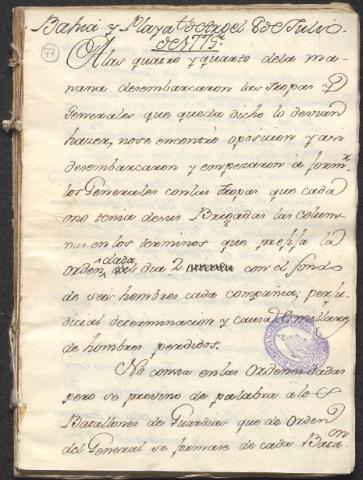 Bahia y Playa de Argel 8 de Julio
de 1775.
A las quatro y quarto dela ma-
nana desembarcaron las tropas y
Generales que queda dicho lo devian
hacer, nose encontró oposicion y asi
desembarcaron y empezaron à form.r
los Generales con las tropas que cada
uno tenia desus Brigadas las colum-
nas en los terminos que prefija la
orden dada del dia 2 con el fondo
de seis hombres cada compañia; perju-
dicial determinacion y causa de millares
de hombres perdidos.
No consta en las ordenes dadas
pero se previno de palabra a los
Batallones de Guardias que de orden
del General se formase de cada Bata.on